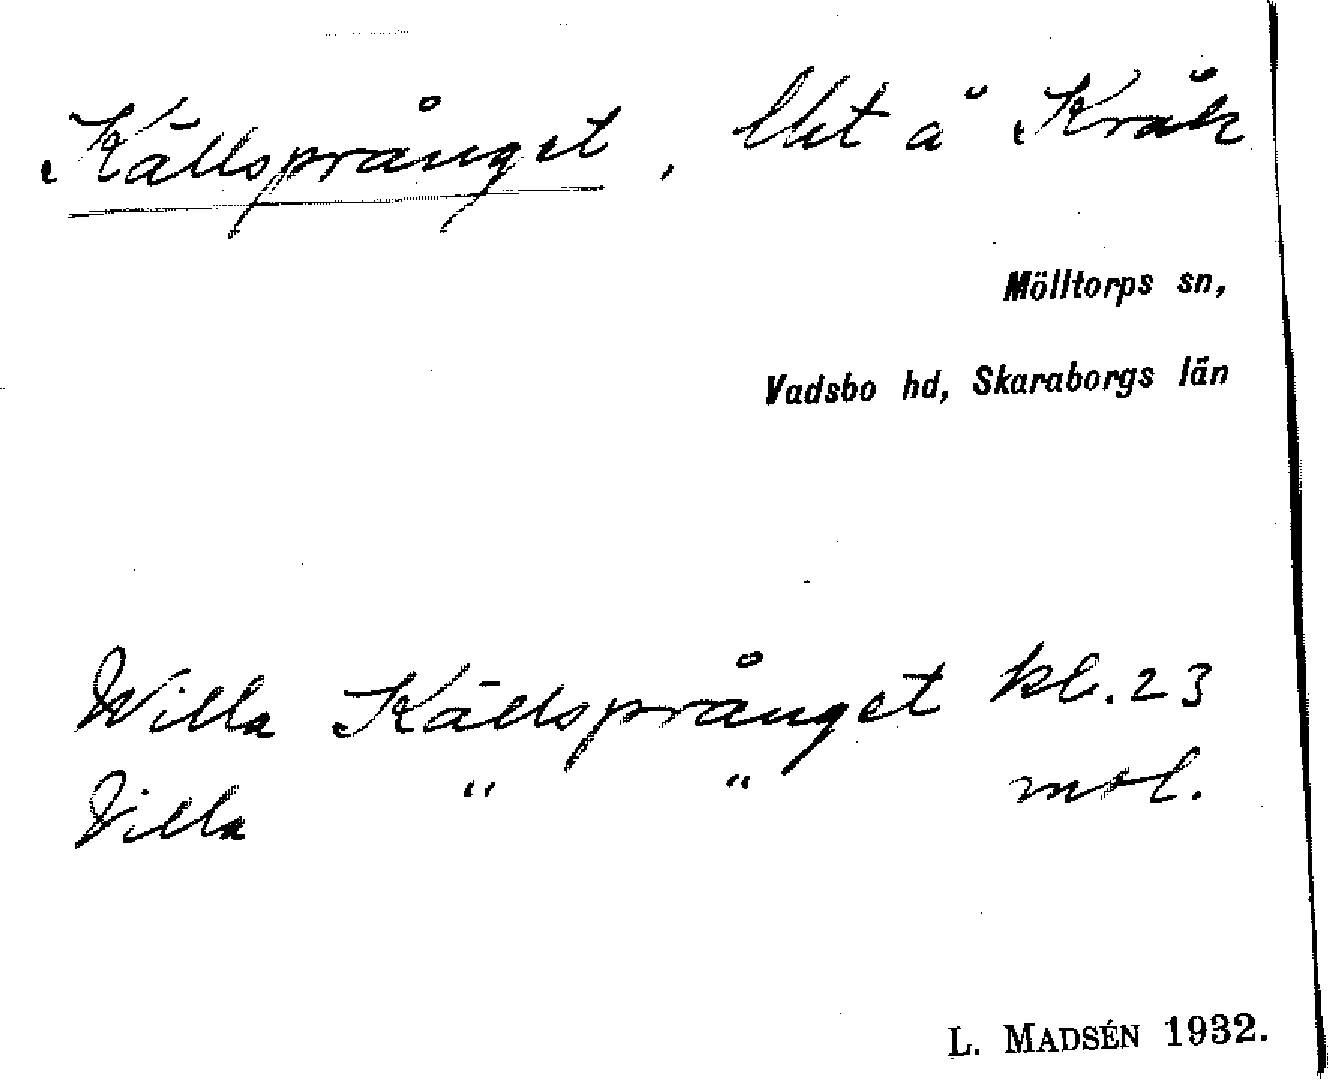 Källsprånget, lht å Kråk
Mölltorps sn,
Vadsbo hd, Skaraborgs län
Willa Källsprånget kl. 23
Villa " " mtl.
L. MADSÉN 1932.